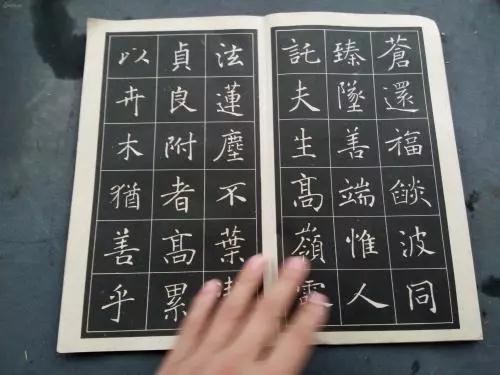 蒼還福燄波同
臻墜善端惟人
託夫生髙嶺
法蓮塵不葉
貞良附者髙累
以卉木猶善乎